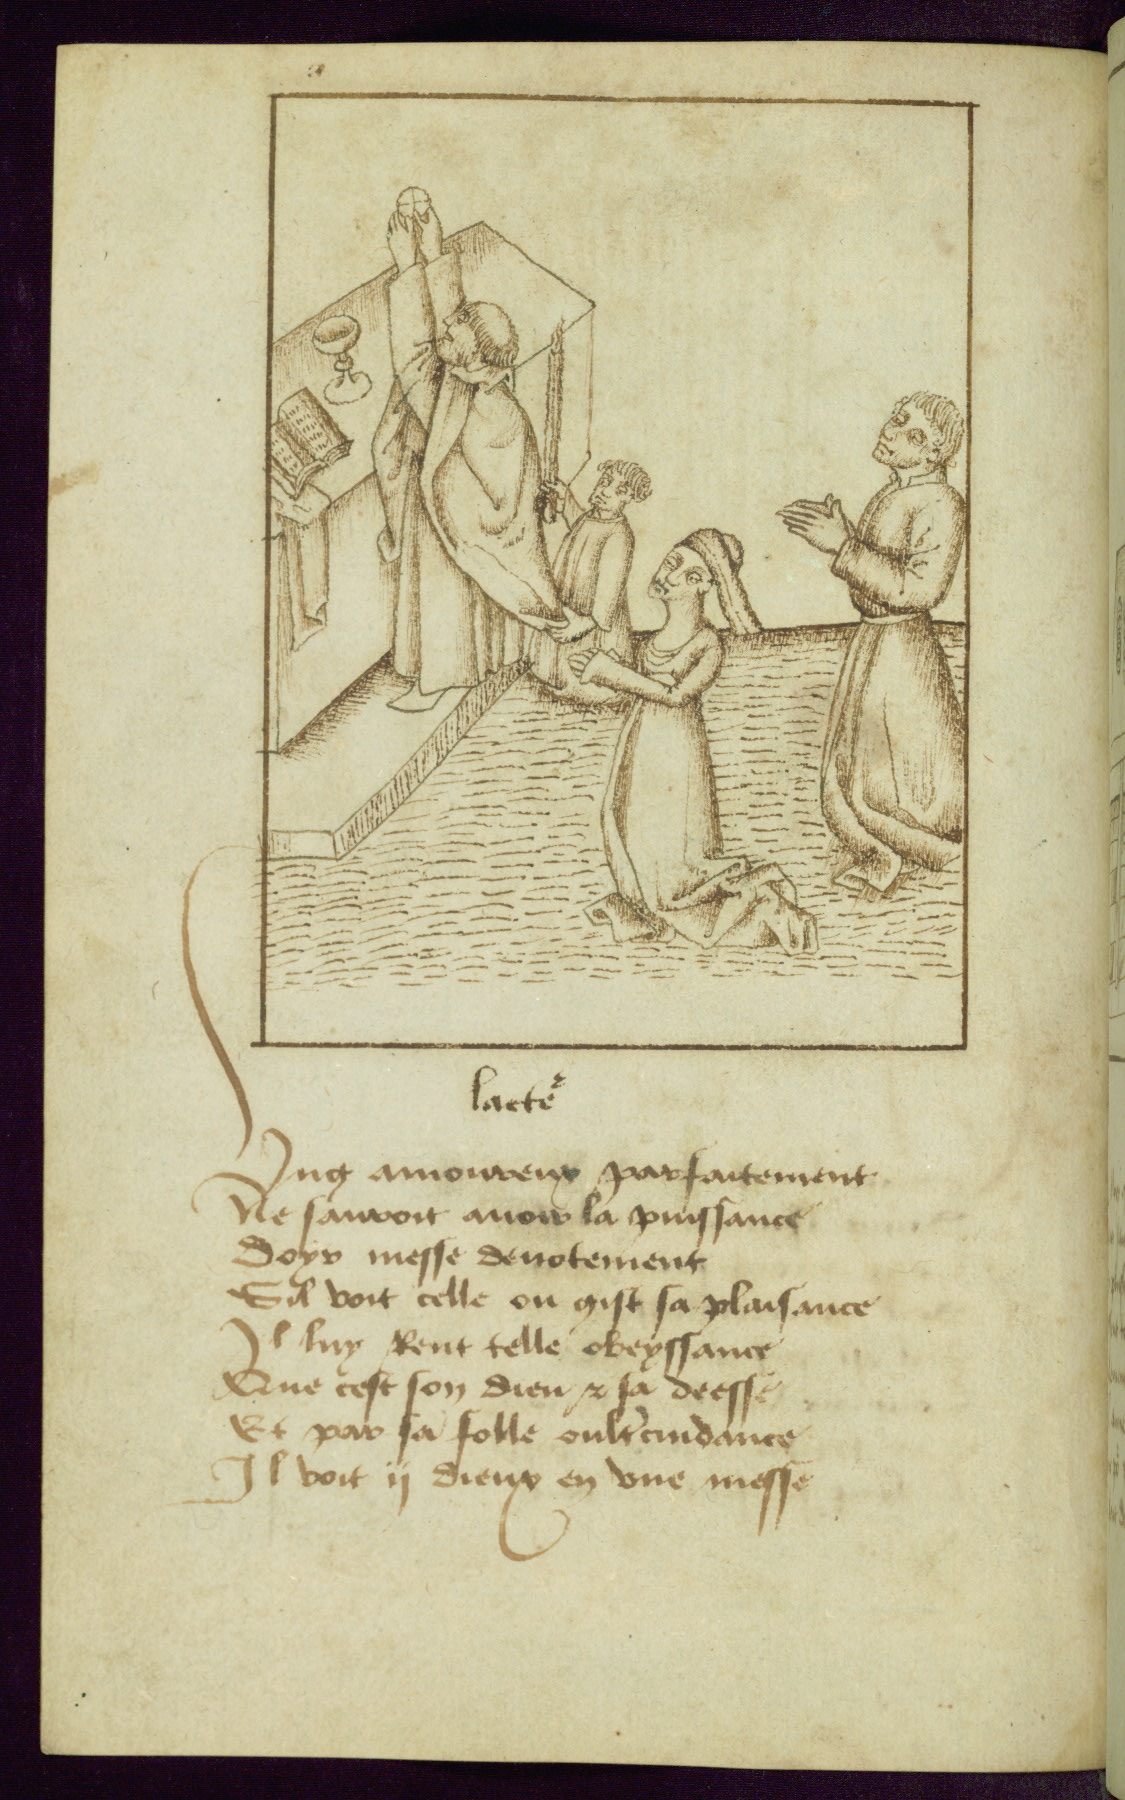 lacteˀ
Ung amoureux parfaitement
Ne sauroit auoir la puissance
Doyr messe deuotement
Sil voit celle ou gist sa plaisance
Il luy Rent telle obeyssance
Que cest son dieu & sa deesse
Et par sa folle oultrcuidance
Il voit ij dieux en vne messe